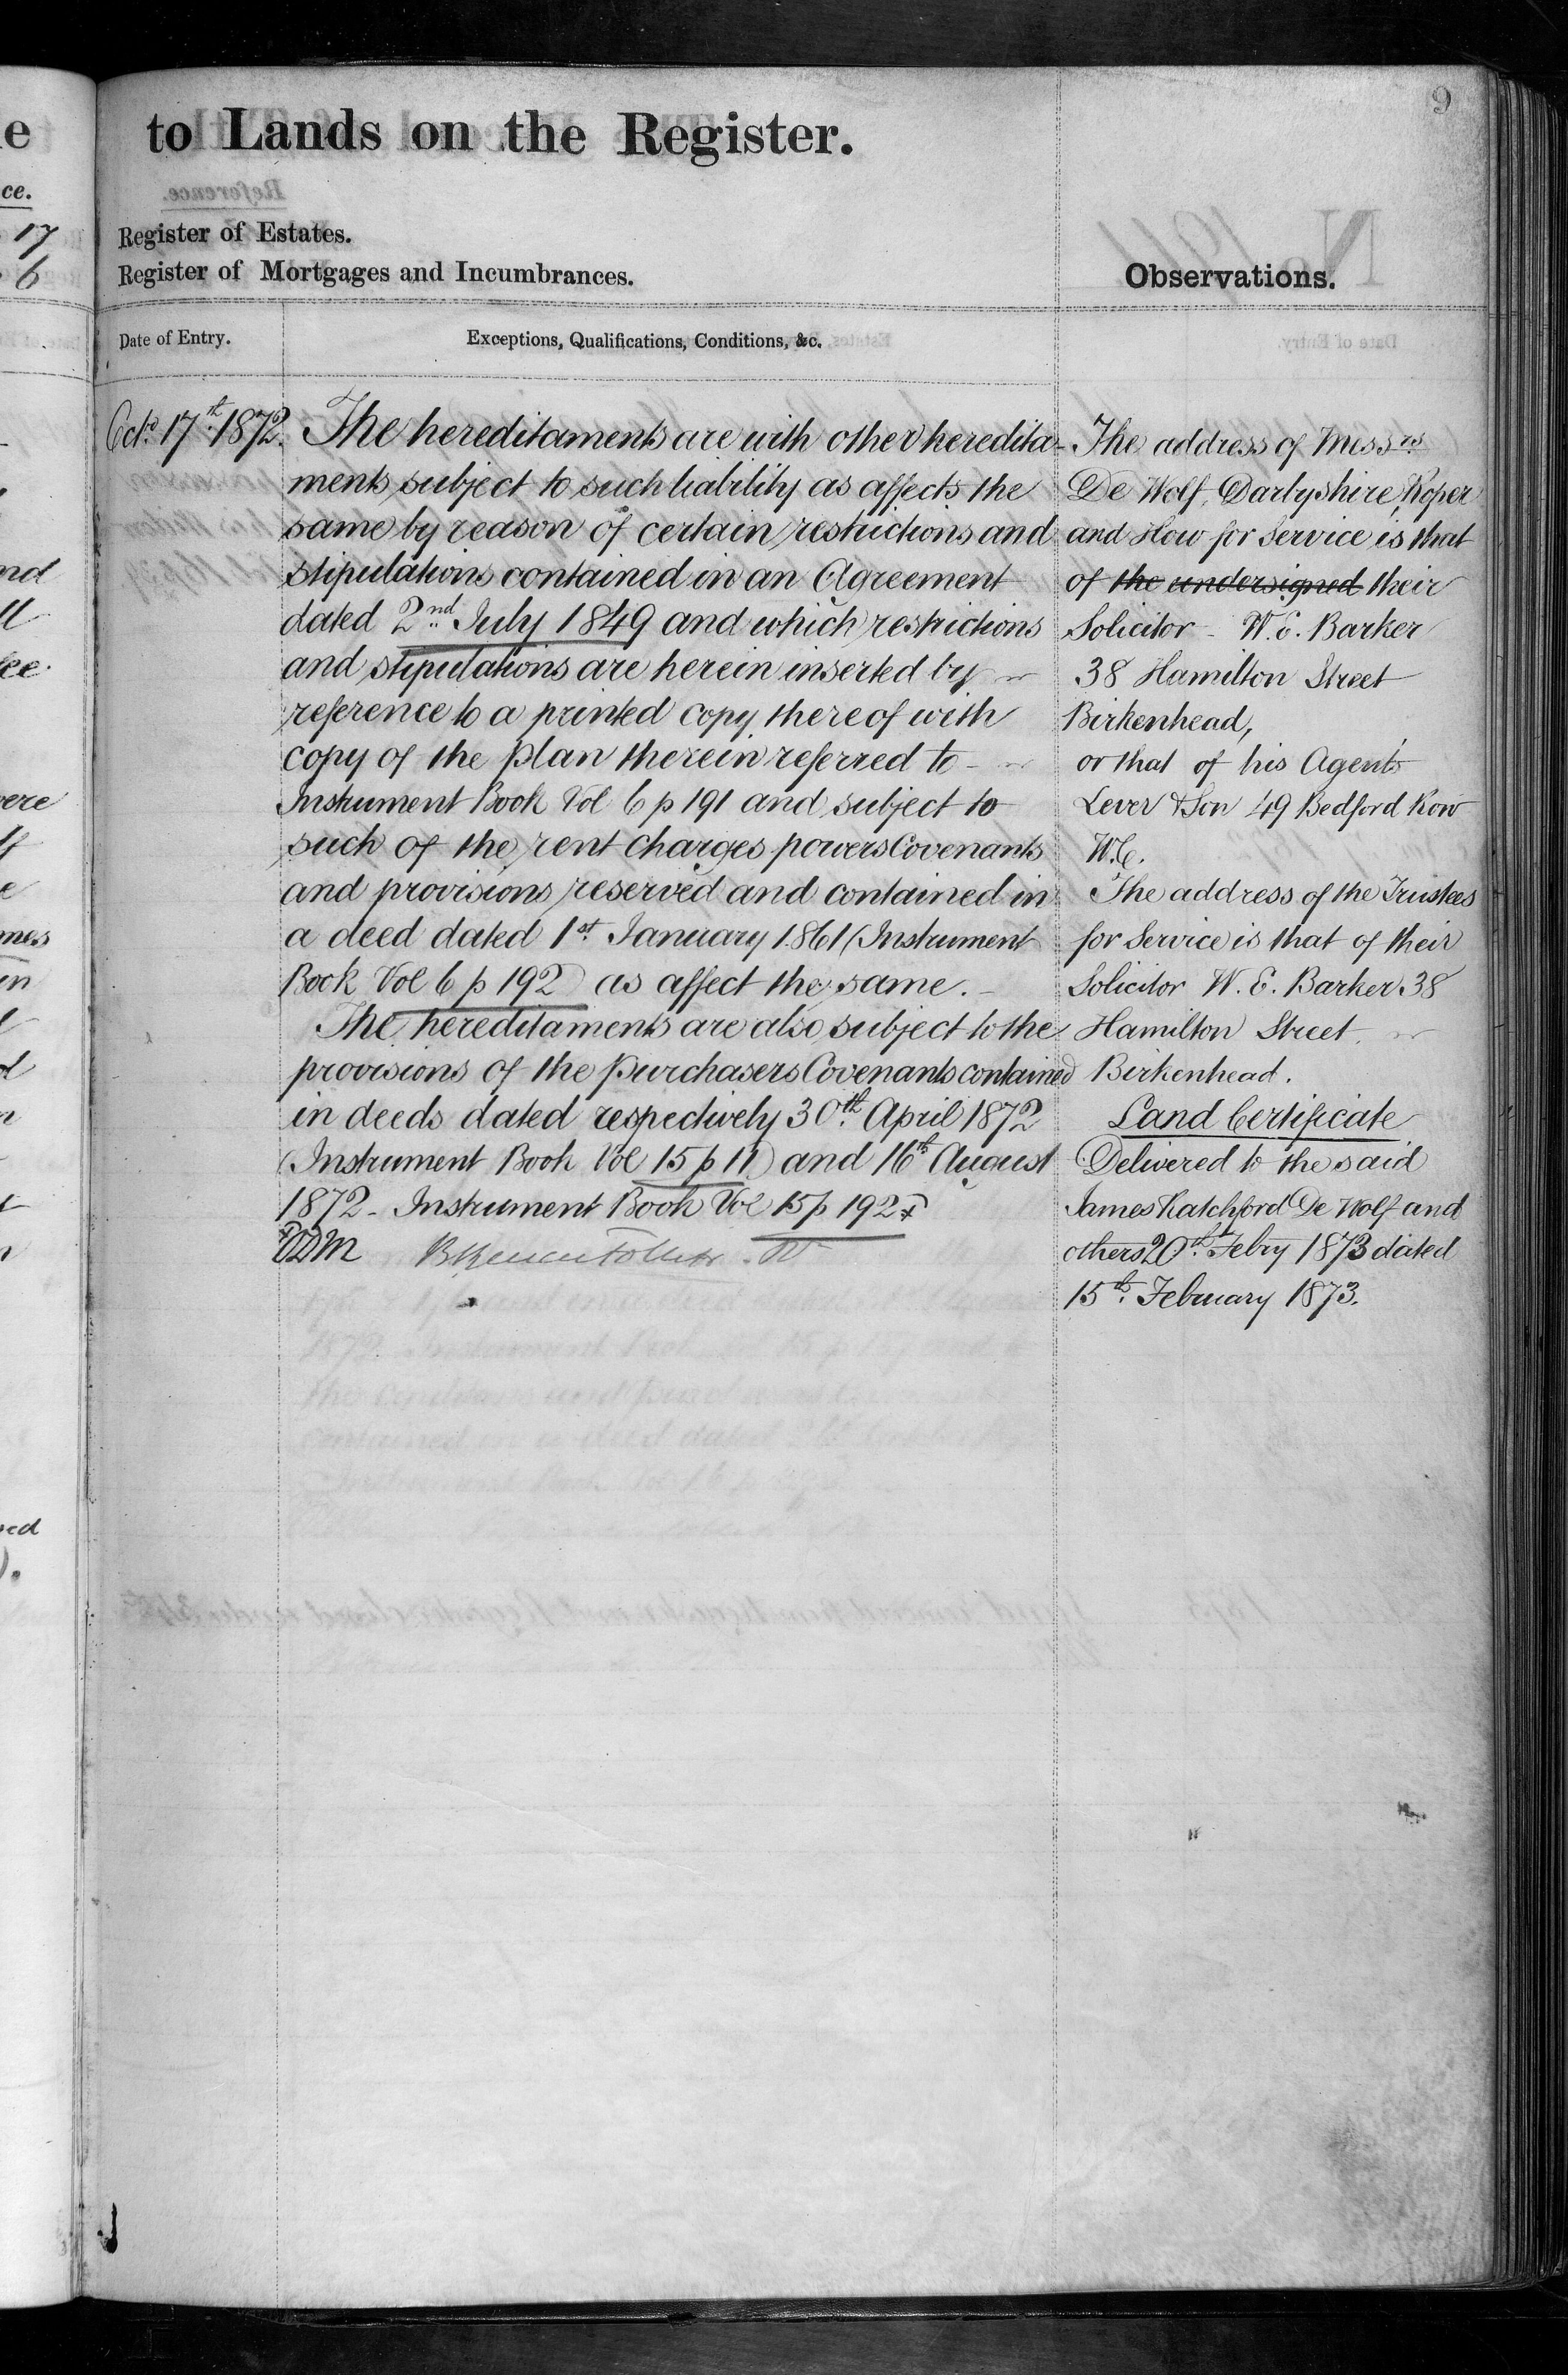 9
to Lands on the Register.
Register of Estates.
Register of Mortgages and Incumbrances.
Observations.
Date of Entry.
Exceptions, Qualifications, Conditions, &c.
Octr. 17th. 1872.
The hereditaments are with other heredita-
ments subject to such liability as affects the
same by reason of certain restrictions and
stipulations contained in an Agreement
dated 2nd. July 1849 and which restrictions
and stipulations are herein inserted by
reference to a printed copy thereof with
copy of the plan therein referred to -
Instrument Book Vol 6 p 191 and subject to
such of the rent charges powers Covenants
and provisions reserved and contained in
a deed dated 1st. January 1861 (Instrument
Book Vol 6 p 192) as affect the same. -
The hereditaments are also subject to the
provisions of the purchasers Covenants contained
in deeds dated respectively 30th. April 1872
(Instrument Book Vol 15 p 11) and 16th August
1872 - Instrument Book Vol 15 p 192
The address of Messrs
De Wolf, Darbyshire, Roper
and How for Service is that
of the undersigned their
Solicitor - W. E. Barker
38 Hamilton Street
Birkenhead,
or that of his Agents
Lever & Son 49 Bedford Row
W.C.
The address of the Trustees
for Service is that of their
Solicitor W. E. Barker 38
Hamilton Street
Birkenhead.
Land Certificate
Delivered to the said
James Ratchford De Wolf and
others 20th. Febry 1873 dated
15th. February 1873.